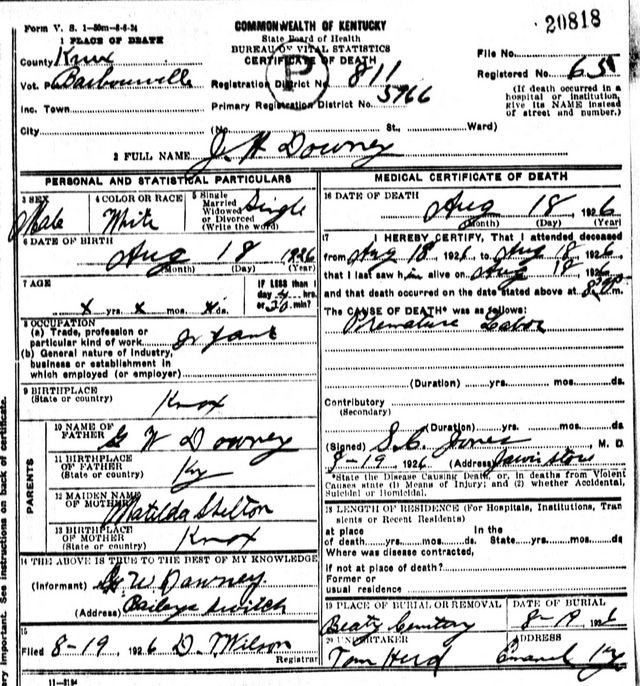 Form V. S. 1-50m-8-6-24
COMMONWEALTH OF KENTUCKY
20818
State Board of Health
BUREAU OF VITAL STATISTICS
CERTIFICATE OF DEATH
1 PLACE OF DEATH
County Knox
File No.
Vot. P Barbourville
Registration District No. 811
Registered No. 65
Inc. Town
Primary Registration District No. 5966
(If death occurred in a hospital or institution, give its NAME instead of street and number.)
City (No. St., Ward)
2 FULL NAME J. H Downey
PERSONAL AND STATISTICAL PARTICULARS
3 SEX Male
4 COLOR OR RACE White
5 Single Married Widowed or Divorced (Write the word) Single
6 DATE OF BIRTH
Aug 18 1926
(Month) (Day) (Year)
7 AGE
x yrs. x mos. x ds.
IF LESS than 1 day hrs. or 20 min?
8 OCCUPATION
(a) Trade, profession or particular kind of work
(b) General nature of industry, business or establishment in which employed (or employer)
9 BIRTHPLACE (State or country) Knox
PARENTS
10 NAME OF FATHER G W Downey
11 BIRTHPLACE OF FATHER (State or country) Ky
12 MAIDEN NAME OF MOTHER Matilda Shelton
13 BIRTHPLACE OF MOTHER (State or country) Knox
14 THE ABOVE IS TRUE TO THE BEST OF MY KNOWLEDGE
(Informant) G W Downey
(Address) Baileys Switch
15
Filed 8-19 1926 D. Wilson
Registrar
11-3184
MEDICAL CERTIFICATE OF DEATH
16 DATE OF DEATH
Aug 18, 1926
(Month) (Day) (Year)
17 I HEREBY CERTIFY, That I attended deceased
from Aug 18, 1926 to Aug 18, 1926
that I last saw him alive on Aug 18 1926
and that death occurred on the date stated above at 8 P m.
The CAUSE OF DEATH* was as follows:
Premature Labor
(Duration) yrs. mos. ds.
Contributory
(Secondary)
(Duration) yrs. mos. ds.
(Signed) S. C. Jones M. D.
8-19 1926 (Address) Jarvis Store
*State the Disease Causing Death, or, in deaths from Violent Causes state (1) Means of Injury; and (2) whether Accidental, Suicidal or Homicidal.
18 LENGTH OF RESIDENCE (For Hospitals, Institutions, Transients or Recent Residents)
at place of death yrs. mos. ds. In the State yrs. mos. ds.
Where was disease contracted,
if not at place of death?
Former or usual residence
19 PLACE OF BURIAL OR REMOVAL
Beatz Cemitory
DATE OF BURIAL
8-19 1926
20 UNDERTAKER
Tom Herd
ADDRESS
Emanel Ky
ery important. See instructions on back of certificate.